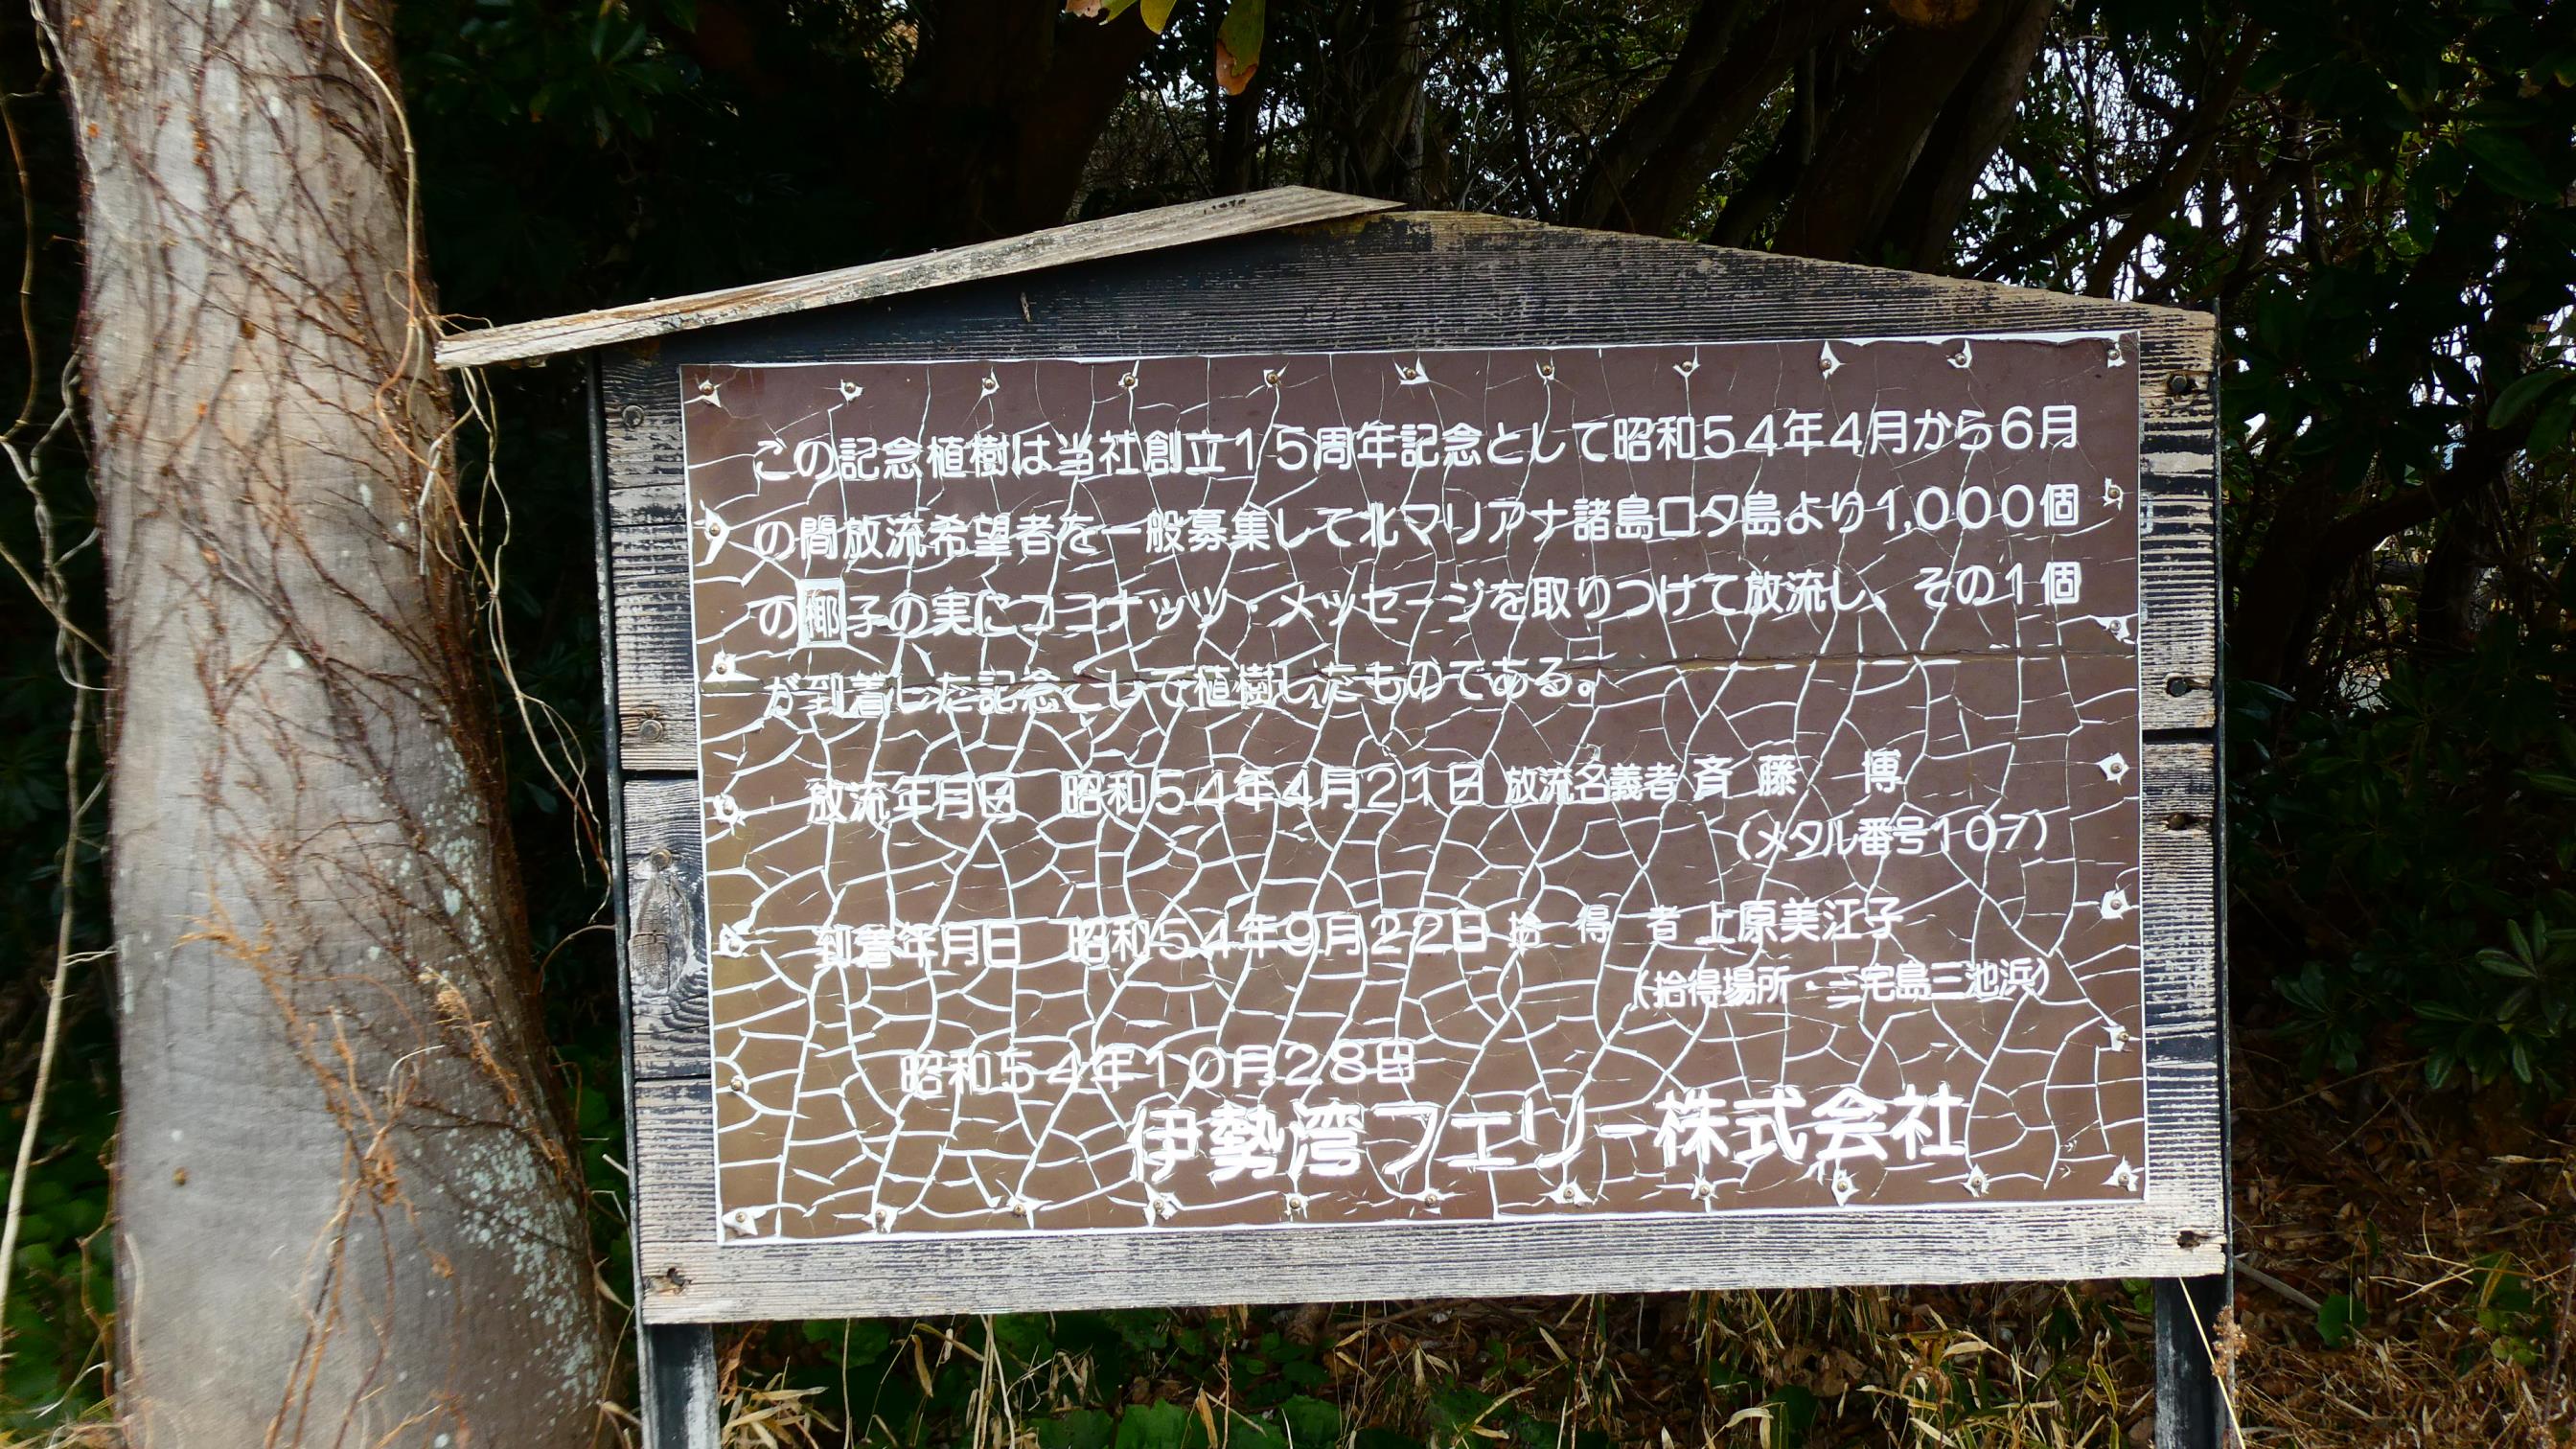 この記念植樹は当社創立15周年記念として昭和54年4月から6月
の間放流希望者を一般募集して北マリアナ諸島ロタ島より1,000個
の椰子の実にココナッツ・メッセージを取りつけて放流し、その1個
が到着した記念として植樹したものである。
放流年月日 昭和54年4月21日 放流名義者 斉藤 博
(メタル番号107)
到着年月日 昭和54年9月22日 拾得者 上原美江子
(拾得場所・三宅島三池浜)
昭和54年10月28日
伊勢湾フェリー株式会社